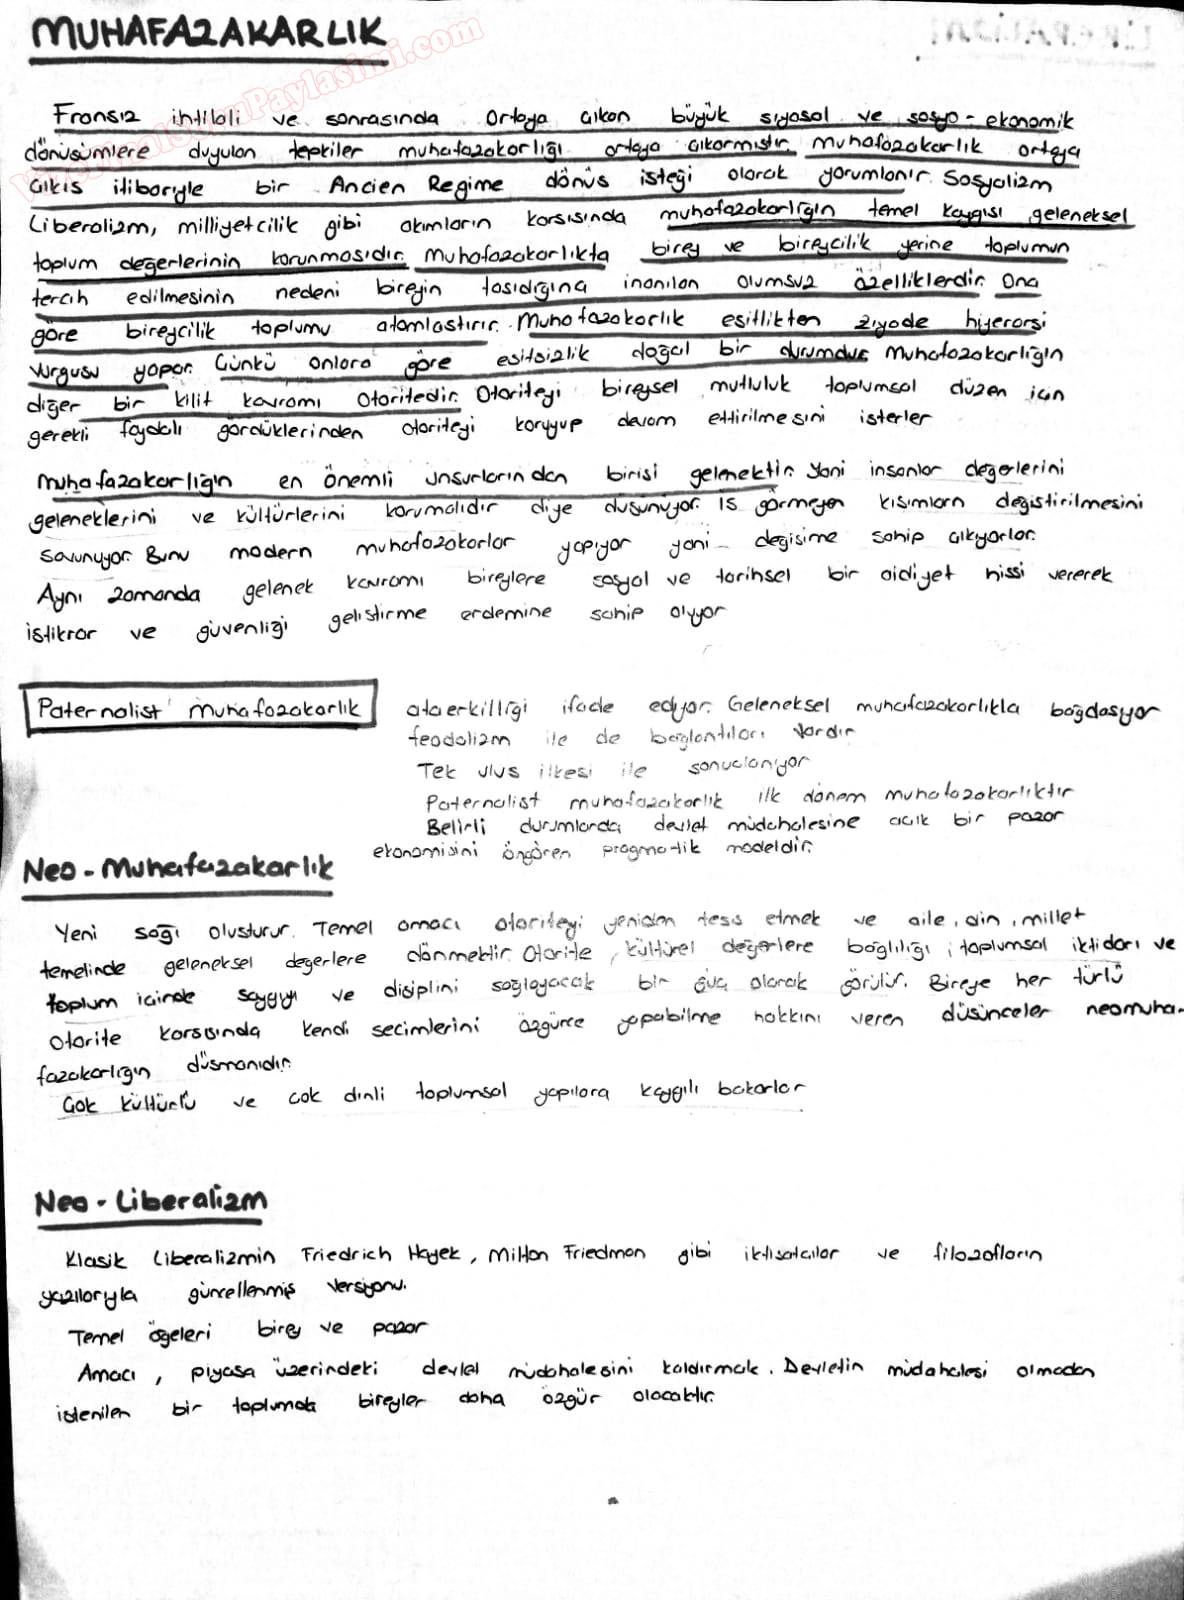 MUHAFAZAKARLIK
VizeFinalSoruPaylasimi.com
Fransız ihtilali ve sonrasında ortaya cıkan büyük siyasal ve sosyo-ekonomik
dönüsümlere duyulan tepkiler muhafazakarlığı ortaya cıkarmıstır. Muhafazakarlık ortaya
cıkıs itibariyle bir Ancien Regime dönüs isteği olarak yorumlanır. Sosyalizm
Liberalizm, milliyetcilik gibi akımların karsısında muhafazakarlığın temel kaygısı geleneksel
toplum değerlerinin korunmasıdır. Muhafazakarlıkta birey ve bireycilik yerine toplumun
tercih edilmesinin nedeni bireyin tasıdığına inanılan olumsuz özelliklerdir. Ona
göre bireycilik toplumu atomlastırır. Muhafazakarlık esitlikten ziyade hiyerarsi
vurgusu yapar. Çünkü onlara göre esitsizlik doğal bir durumdur. Muhafazakarlığın
diğer bir kilit kavramı otoritedir. Otoriteyi bireysel mutluluk toplumsal düzen icin
gerekli faydalı gördüklerinden otoriteyi koruyup devam ettirilmesini isterler
Muhafazakarlığın en önemli unsurlarından birisi gelenektir. Yani insanlar değerlerini
geleneklerini ve kültürlerini korumalıdır diye dusunuyor. Is görmeyen kısımların değistirilmesini
savunuyor. Bunu modern muhafazakarlar yapıyor yani değisime sahip cıkıyorlar.
Aynı zamanda gelenek kavramı bireylere sosyal ve tarihsel bir aidiyet hissi vererek
istikrar ve güvenliği gelistirme erdemine sahip oluyor
Paternalist muhafazakarlık ataerkilliği ifade ediyor. Geleneksel muhafazakarlıkla bağdasıyor
feodalizm ile de bağlantıları vardır
Tek ulus ilkesi ile sonuclanıyor
Paternalist muhafazakarlık ilk dönem muhafazakarlıktır
Belirli durumlarda devlet müdahalesine acık bir pazar
ekonomisini öngören pragmatik modeldir.
Neo-Muhafazakarlık
Yeni sağı olusturur. Temel amacı otoriteyi yeniden tesis etmek ve aile, din, millet
temelinde geleneksel değerlere dönmektir. Otorite, kültürel değerlere bağlılığı, toplumsal iktidarı ve
toplum icinde saygıyı ve disiplini sağlayacak bir güc olarak görülür. Bireye her türlü
otorite karsısında kendi secimlerini özgürce yapabilme hakkını veren düsünceler neomuha-
fazakarlığın düsmanıdır.
Çok kültürlü ve cok dinli toplumsal yapılara kaygılı bakarlar
Neo-Liberalizm
Klasik Liberalizmin Friedrich Hayek, Milton Friedman gibi iktisatcılar ve filozofların
yazılarıyla güncellenmiş versiyonu.
Temel ögeleri birey ve pazar
Amacı, piyasa üzerindeki devlet müdahalesini kaldırmak. Devletin müdahalesi olmadan
istenilen bir toplumda bireyler daha özgür olacaktır.